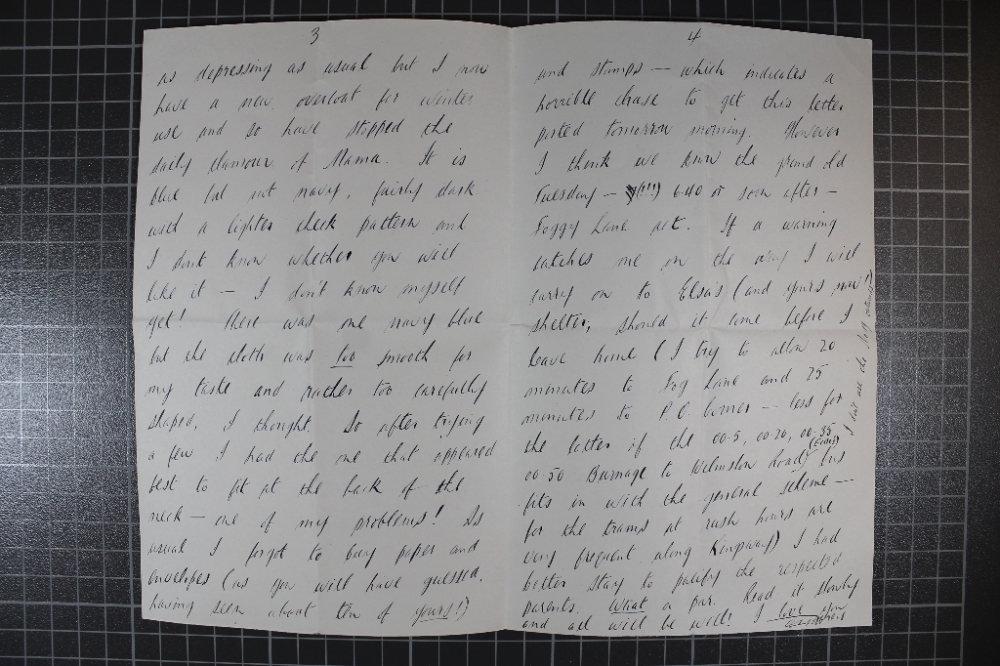 3
as depressing as usual but I now
have a new overcoat for winter
use and so have stopped the
daily clamour of Mama. It is
blue but not navy, fairly dark
with a lighter check pattern and
I don't know whether you will
like it — I don't know myself
yet! There was one navy blue
but the cloth was too smooth for
my taste and rather too carefully
shaped, I thought. So after trying
a few I had the one that appeared
best to fit at the back of the
neck — one of my problems! As
usual I forgot to buy paper and
envelopes (as you will have guessed,
having seen about ten of yours!)
4
and stamps — which indicates a
horrible chase to get this letter
posted tomorrow morning. However
I think we know the grand old
Tuesday — (!!!) 6.40 or soon after —
Foggy Lane act. If a warning
catches me on the way I will
carry on to Elsa's (and yours, now!)
shelter, should it come before I
leave home (I try to allow 20
minutes to Fog Lane and 25
minutes to P.O. Corner — less for
the latter if the 00.5, 00.20, 00.35,
00.50 Burnage to Wilmslow Road bus
fits in with the general scheme —
for the trams at rush hours are
very frequent along Kingsway) I had
better stay to pacify the respected
parents. What a par. Read it slowly
and all will be well! I love you